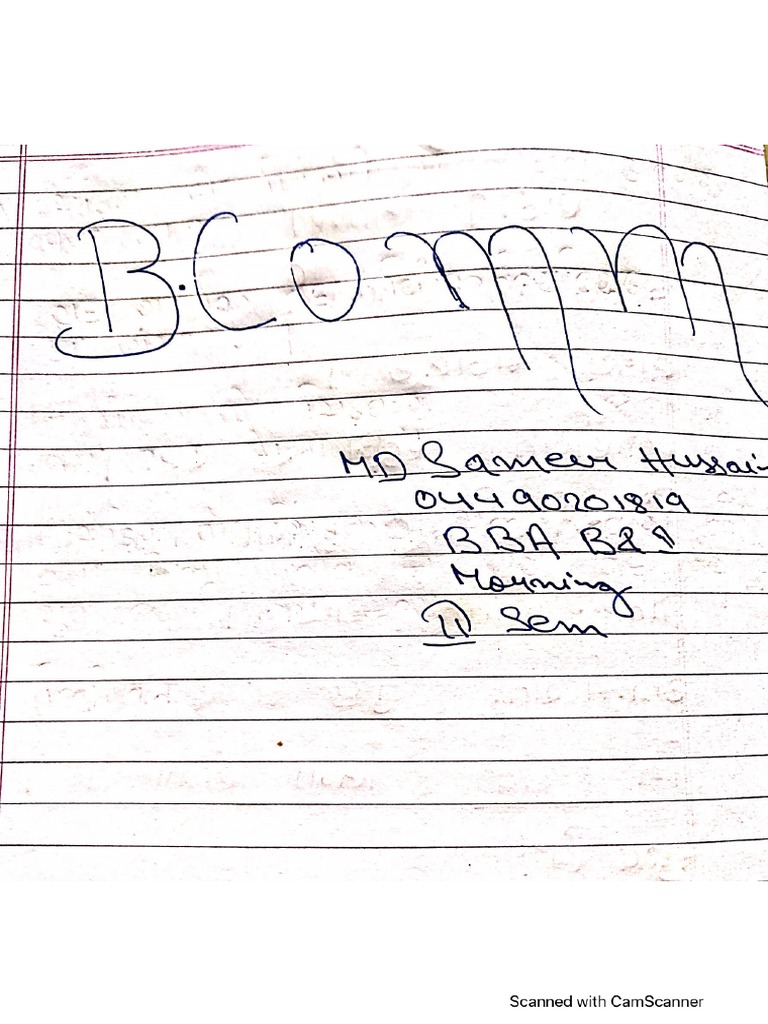 B.Comm
MD Sameer Hussain
04490201819
BBA B&I
Morning
II Sem
Scanned with CamScanner